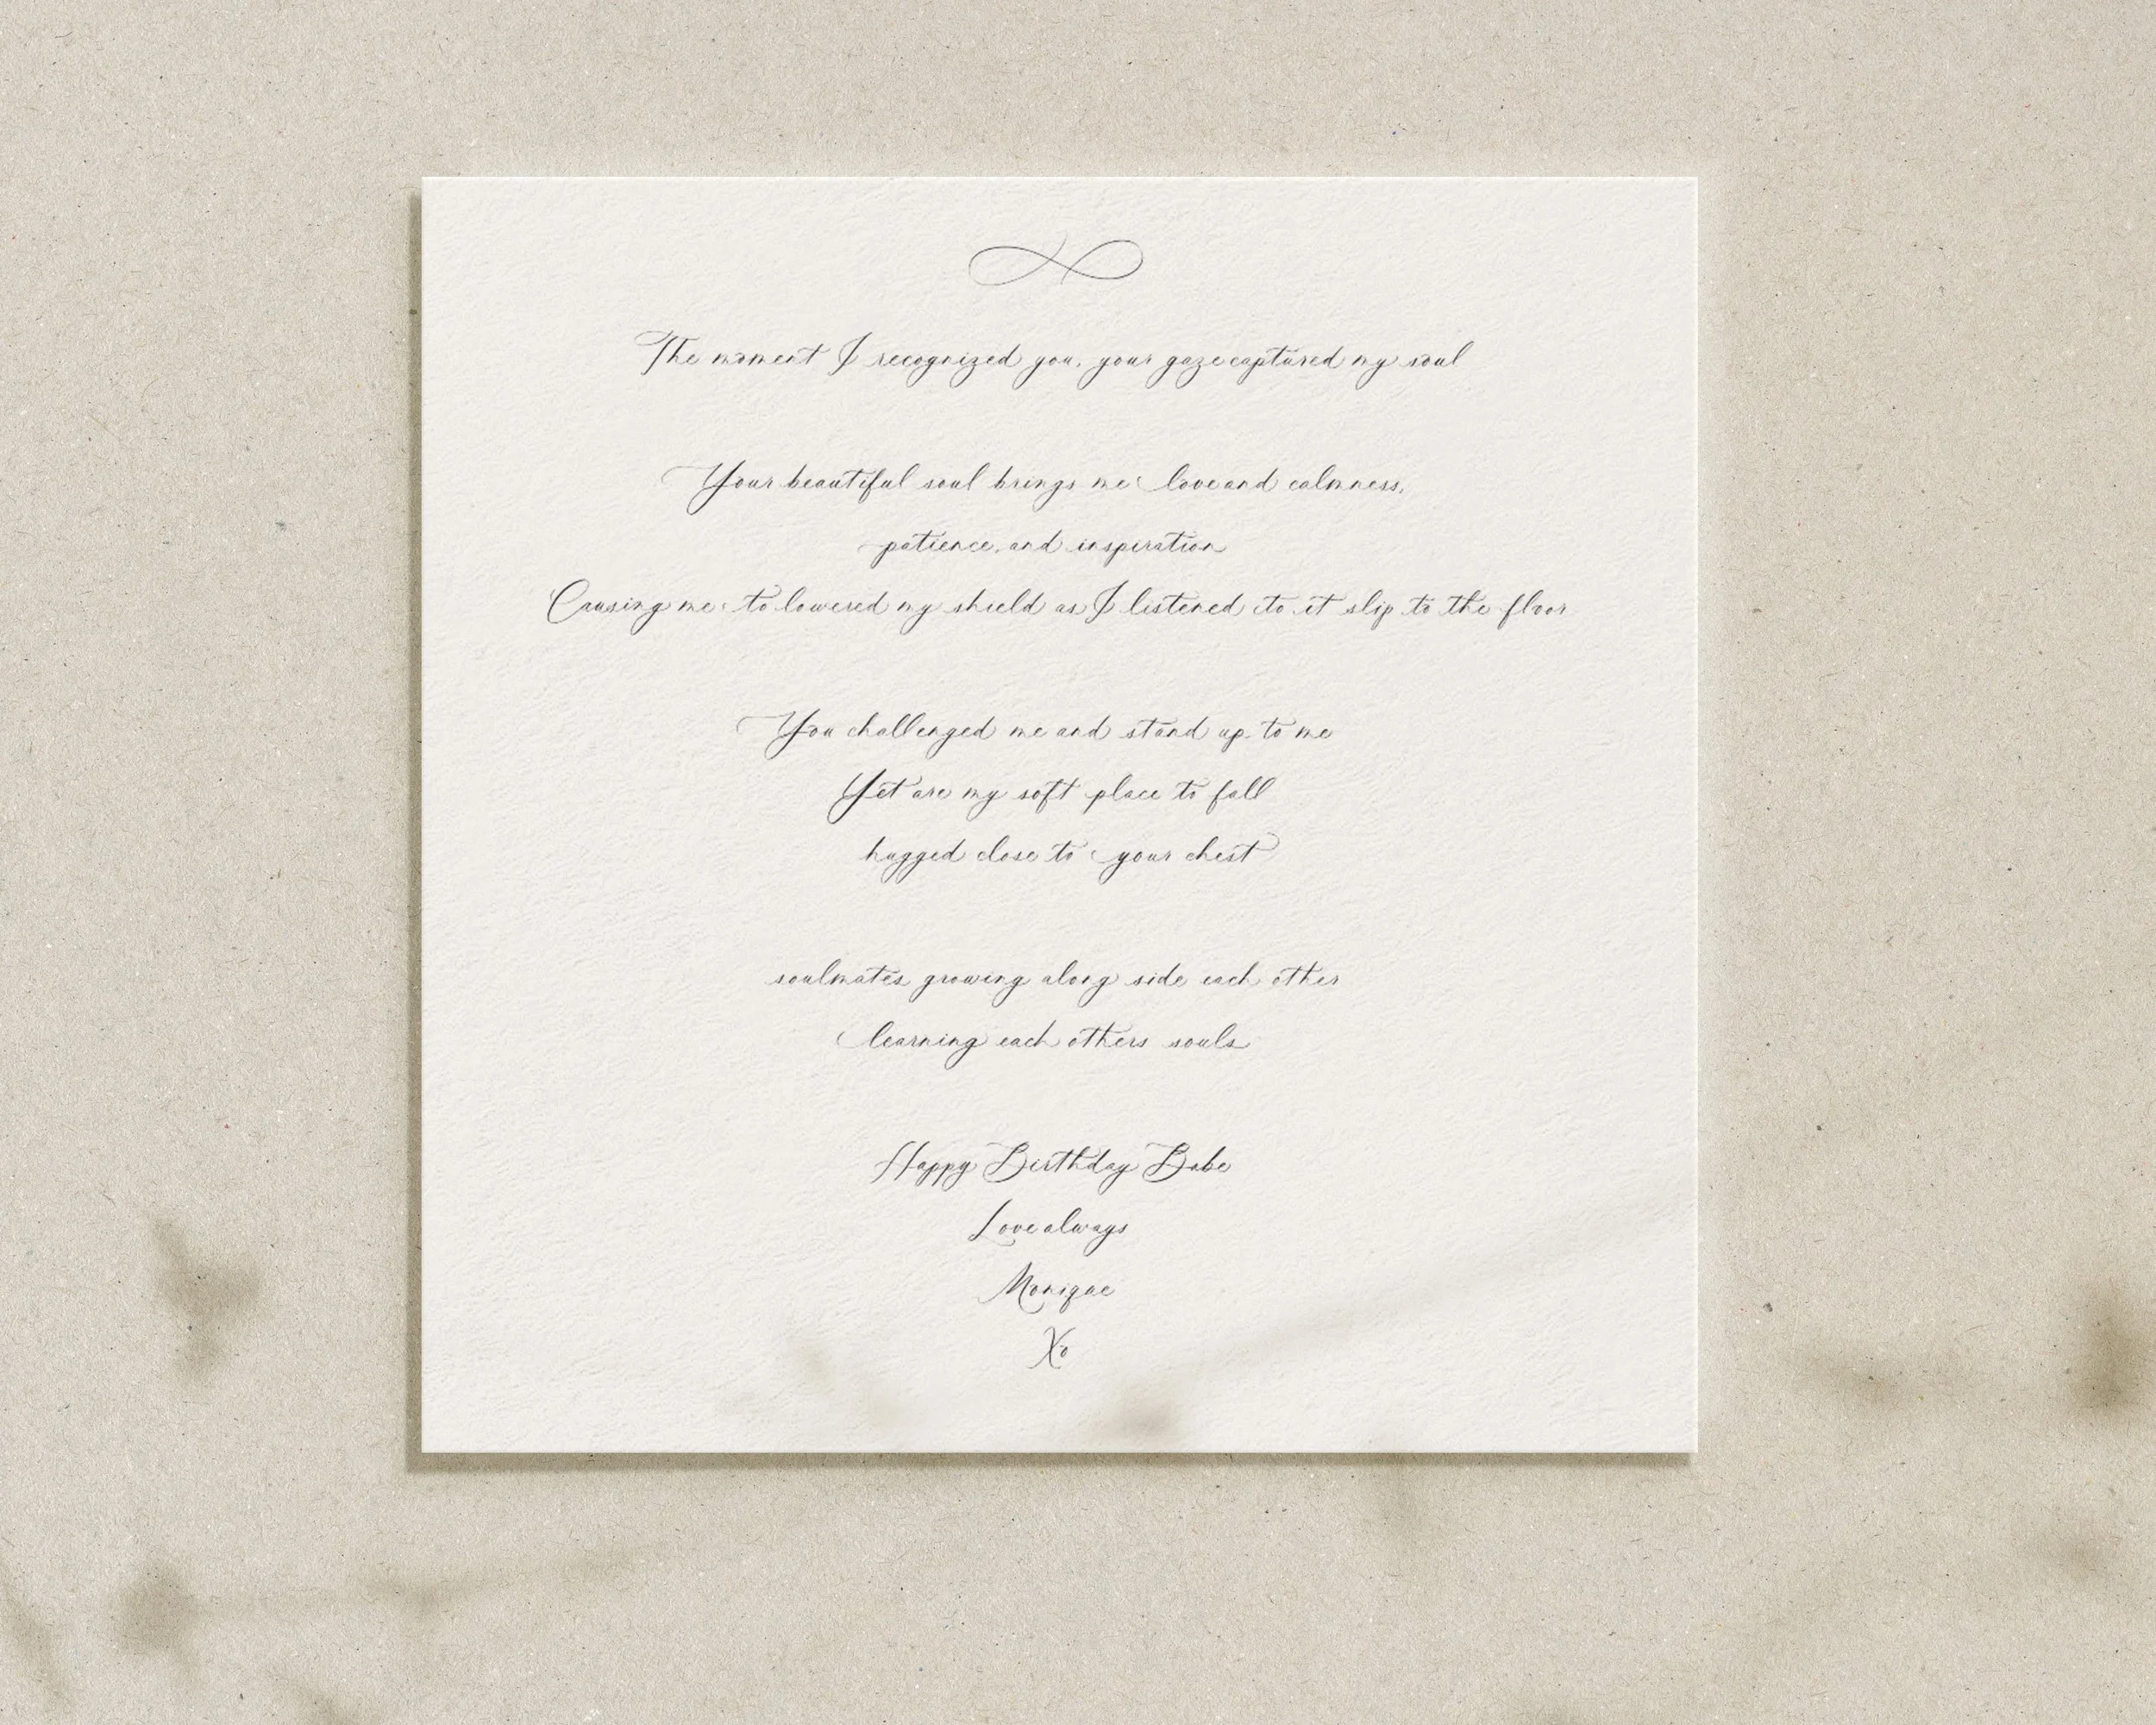 The moment I recognized you, your gaze captured my soul
Your beautiful soul brings me love and calmness,
patience, and inspiration
Causing me to lowered my shield as I listened to it slip to the floor
You challenged me and stand up to me
Yet are my soft place to fall
hugged close to your chest
soulmates growing along side each other
learning each others souls
Happy Birthday Babe
Love always
Monique
Xo